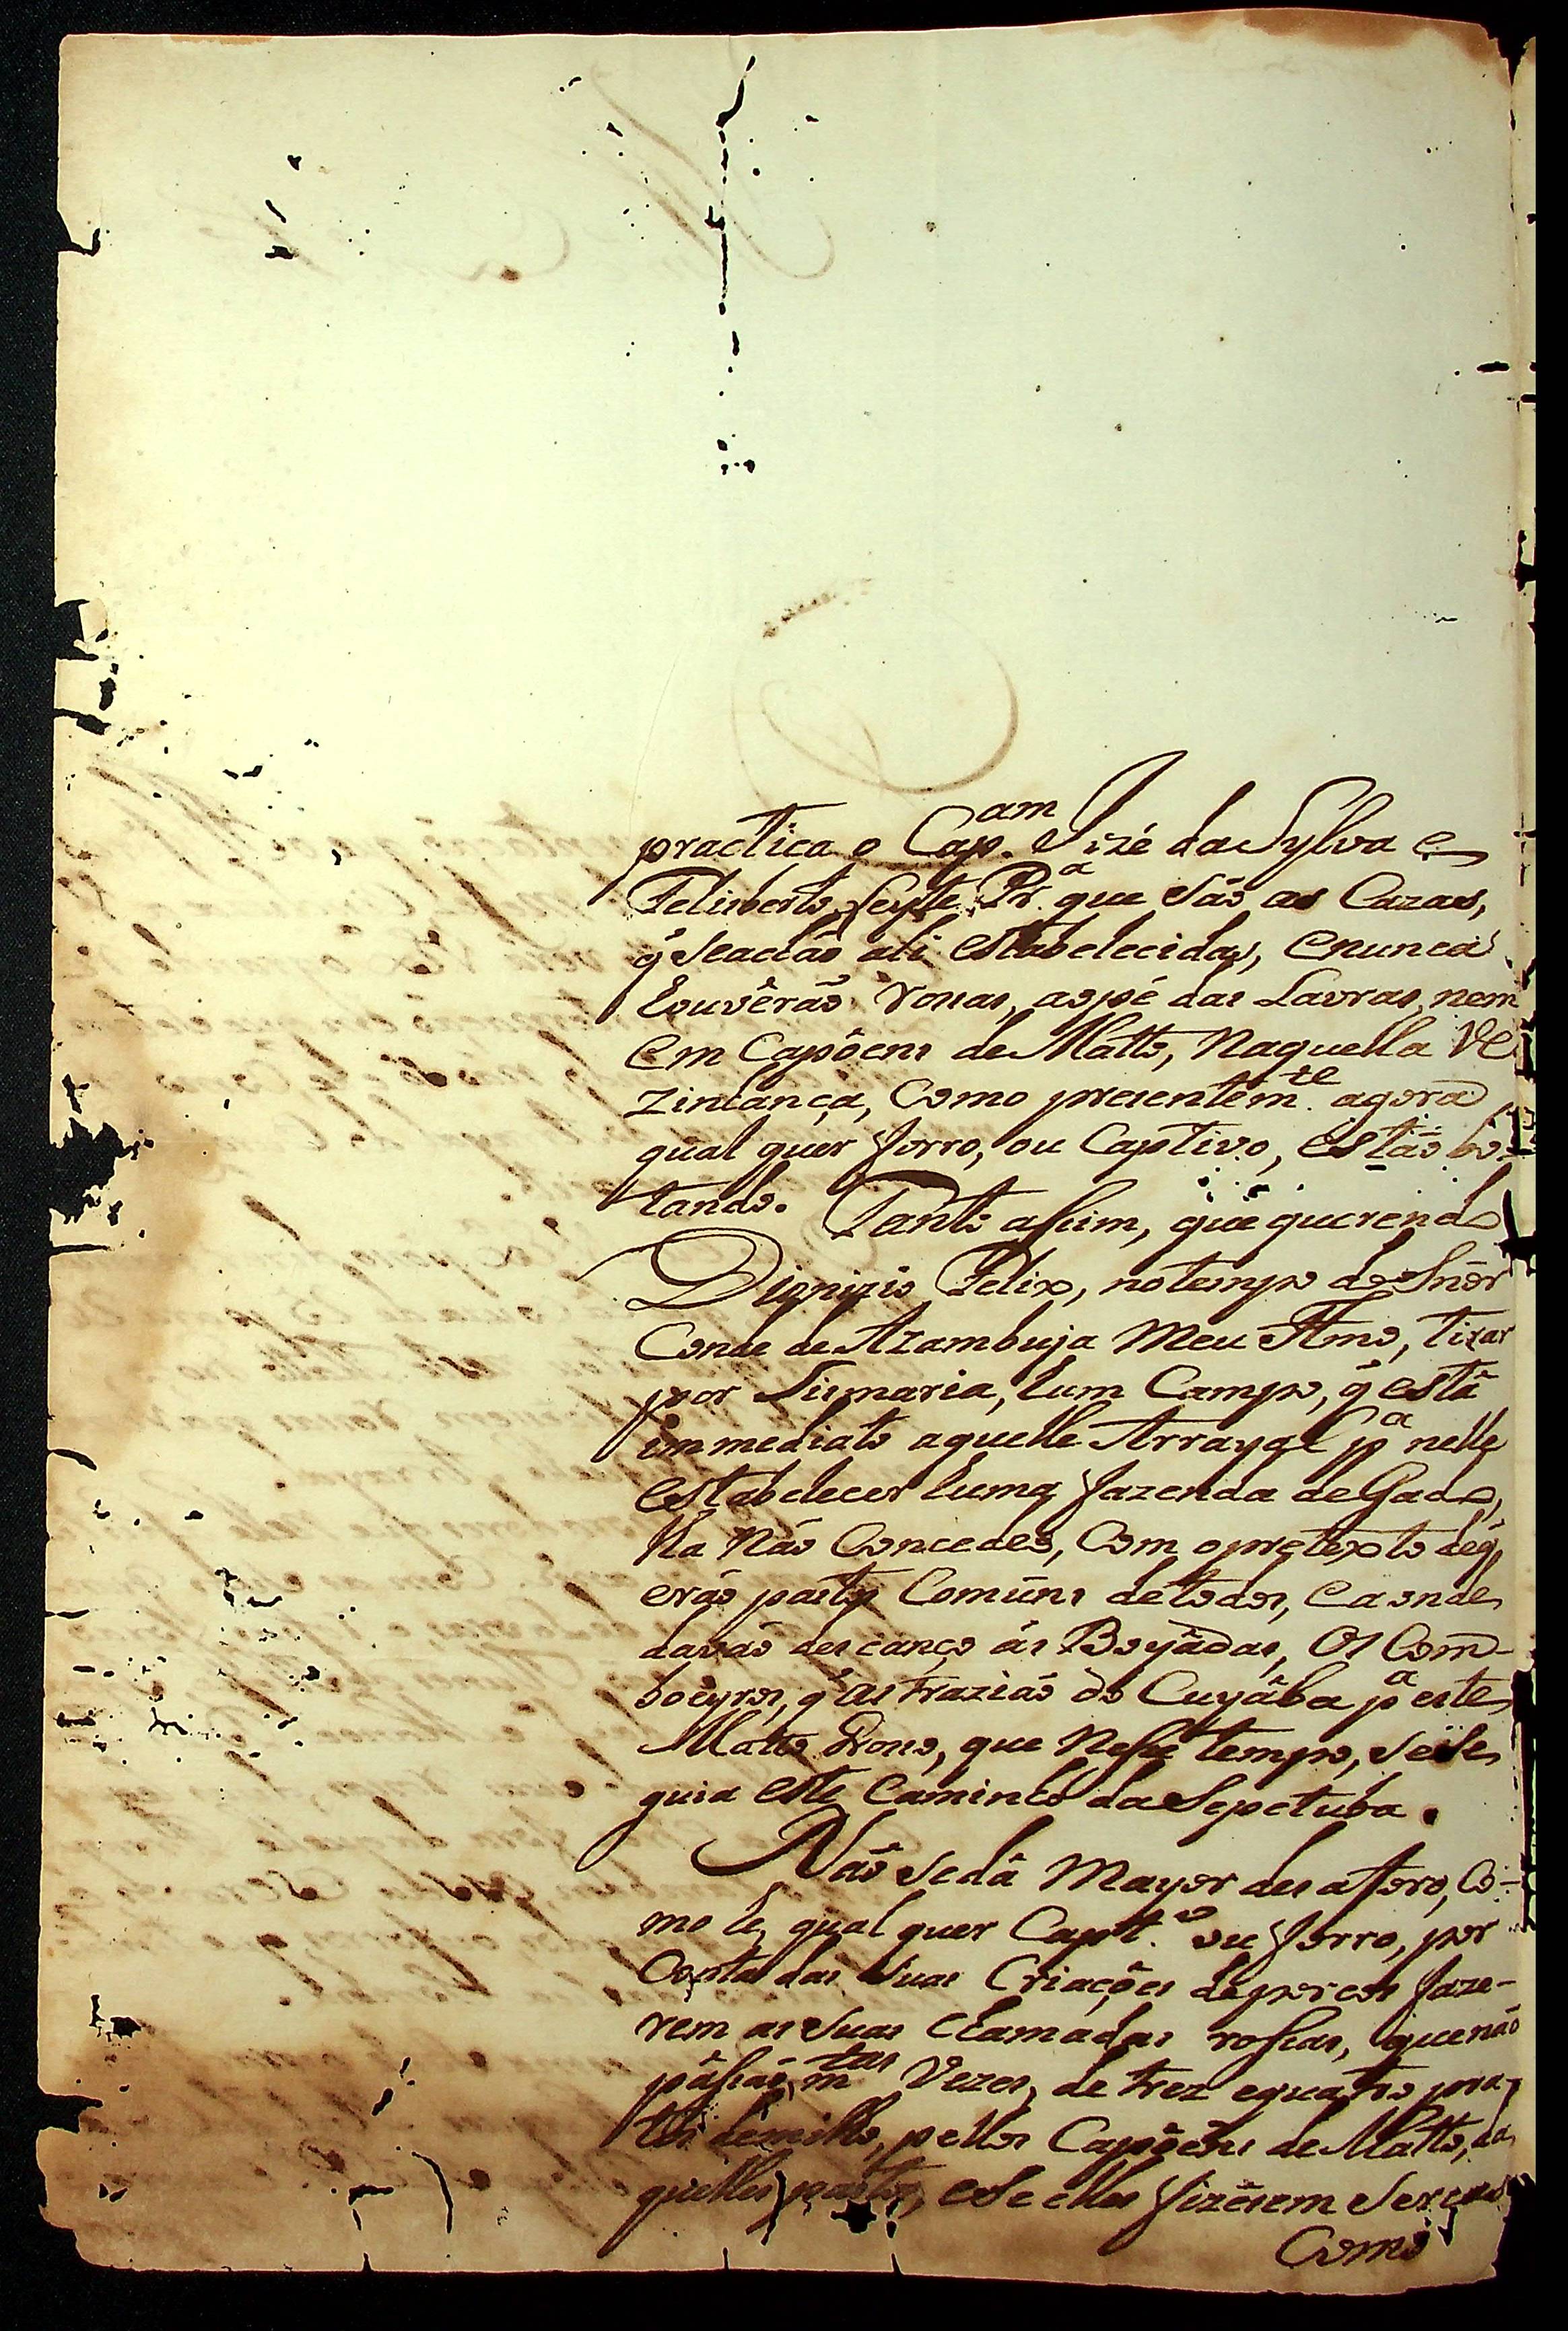 practica o Cap.am Jozé da Sylva e
Feliberto Leyte Pr.a que Sáo as Cazas,
q̃ Se acháo ali estabelecidas, e nunca
houvêráo rossas, ao pé das Lavras, nem
em Capôens de Matto, Naquella Ve
zinhança, Como prezentem.te agora
qual quer forro, ou Captivo, estáo bo-
tando. Tanto assim, que querendo
Dionizio Felix, no tempo do Snõr
Conde de Azambuja Meu Amo, tirar
por Sismaria, hum Campo, q̃ está
immediato aquelle Arrayal p.a nelle
estabelecer huma fazenda de Gado,
lha Náo Concedeo, Com o pretexto de q̃
eráo pastos Comûns de todos, e aonde
daváo descanço ás Boyâdas, Os Com-
boeyros, q̃ as traziáo do Cuyâba p.a este
Matto Grosso, que Nesse tempo, Se Se
guia este Caminho da Sepetuba.
Náo Se dâ Mayor desaforo, Co-
mo he, qual quer Capt.o ou forro, por
Conta das Suas Criaçôes de porcos faze-
rem as Suas Chamadas rossas, que náo
pâssáo m.tas Vezes, de trez e quatro pra-
tos de milho, pellos Capôens de Matto, da
quelles pastos, e Se elles fizésem Sercas
Como